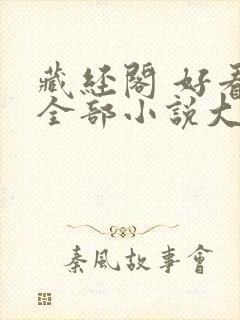 藏经阁 好看
全部小说大
秦風故事會